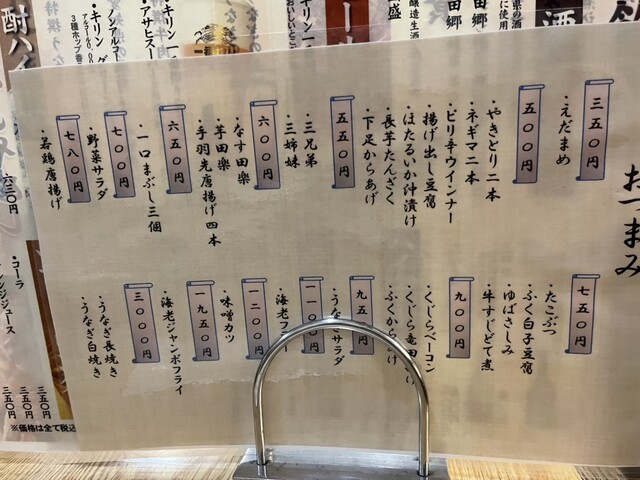 おつまみ
三五〇円
・えだまめ
五〇〇円
・やきとり二本
・ネギマ二本
・ピリ辛ウインナー
・揚げ出し豆腐
・ほたるいか沖漬け
・長芋たんざく
・下足からあげ
五五〇円
・三兄弟
・三姉妹
六〇〇円
・なす田楽
・芋田楽
・手羽先唐揚げ四本
六五〇円
・一口まぶし三個
七〇〇円
・野菜サラダ
七八〇円
・若鶏唐揚げ
七五〇円
・たこぶつ
・ふく白子豆腐
・ゆばさしみ
・牛すじどて煮
九〇〇円
・くじらベーコン
・くじら竜田
・ふくから
九五
・うな
サラダ
一一〇〇円
・海老フ
一二〇〇円
・味噌カツ
一九五〇円
・海老ジャンボフライ
三〇〇〇円
・うなぎ長焼き
・うなぎ白焼き
田郷
酒
酎ハイ
・キリン
・アサヒスー
・ノンアルコー
3種ホップ香
醸造生酒
盛
に使用
六三〇円
・コーラ
ジュース
三五〇円
三五〇円
三五〇円
※価格は全て税込